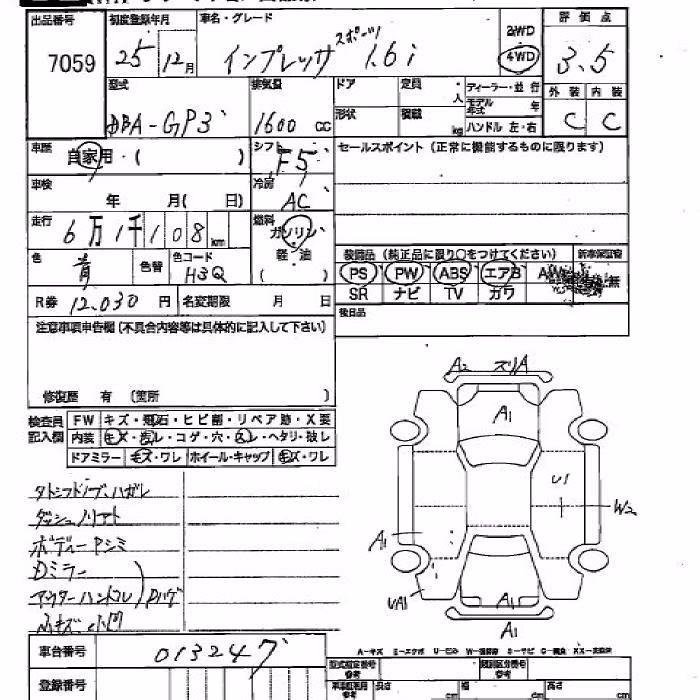 出品番号 初度登録年月 車名・グレード 評価点
7059 25年12月 インプレッサ スポーツ 1.6i 2WD 4WD 3.5
型式 排気量 ドア 定員 人 ディーラー・並行 外装 内装
モデル年式 年
DBA-GP3 1600cc 形状 積載 kg ハンドル 左・右 C C
車歴 自家用・( ) シフト F5 セールスポイント (正常に機能するものに限ります)
車検 年 月( 日) 冷房 AC
走行 6万1千108km 燃料 ガソリン
軽・油
色 青 色替 色コード H3Q ( )
装備品 (純正品に限り○をつけてください) 新車保証書
PS PW ABS エアB AW 無
R券 12,030円 名変期限 月 日 SR ナビ TV カワ
注意事項申告欄 (不具合内容等は具体的に記入して下さい) 後日品
修復歴 有 (箇所 )
検査員記入欄 FW キズ・飛石・ヒビ割・リペア跡・X要
内装 キズ・汚レ・コゲ・穴・ヘタリ・破レ
ドアミラー キズ・ワレ ホイール・キャップ キズ・ワレ
A2 ズリA
A1
U1
W2
A1
UA1
A1
A1
ボディーPシミ
Dミラー
アウターハンドル
小凹
A-キズ E-エクボ U-凹ミ S-サビ
車台番号 013247
登録番号
型式指定番号 参考 類別区分番号 参考
長さ cm 幅 cm 高さ cm